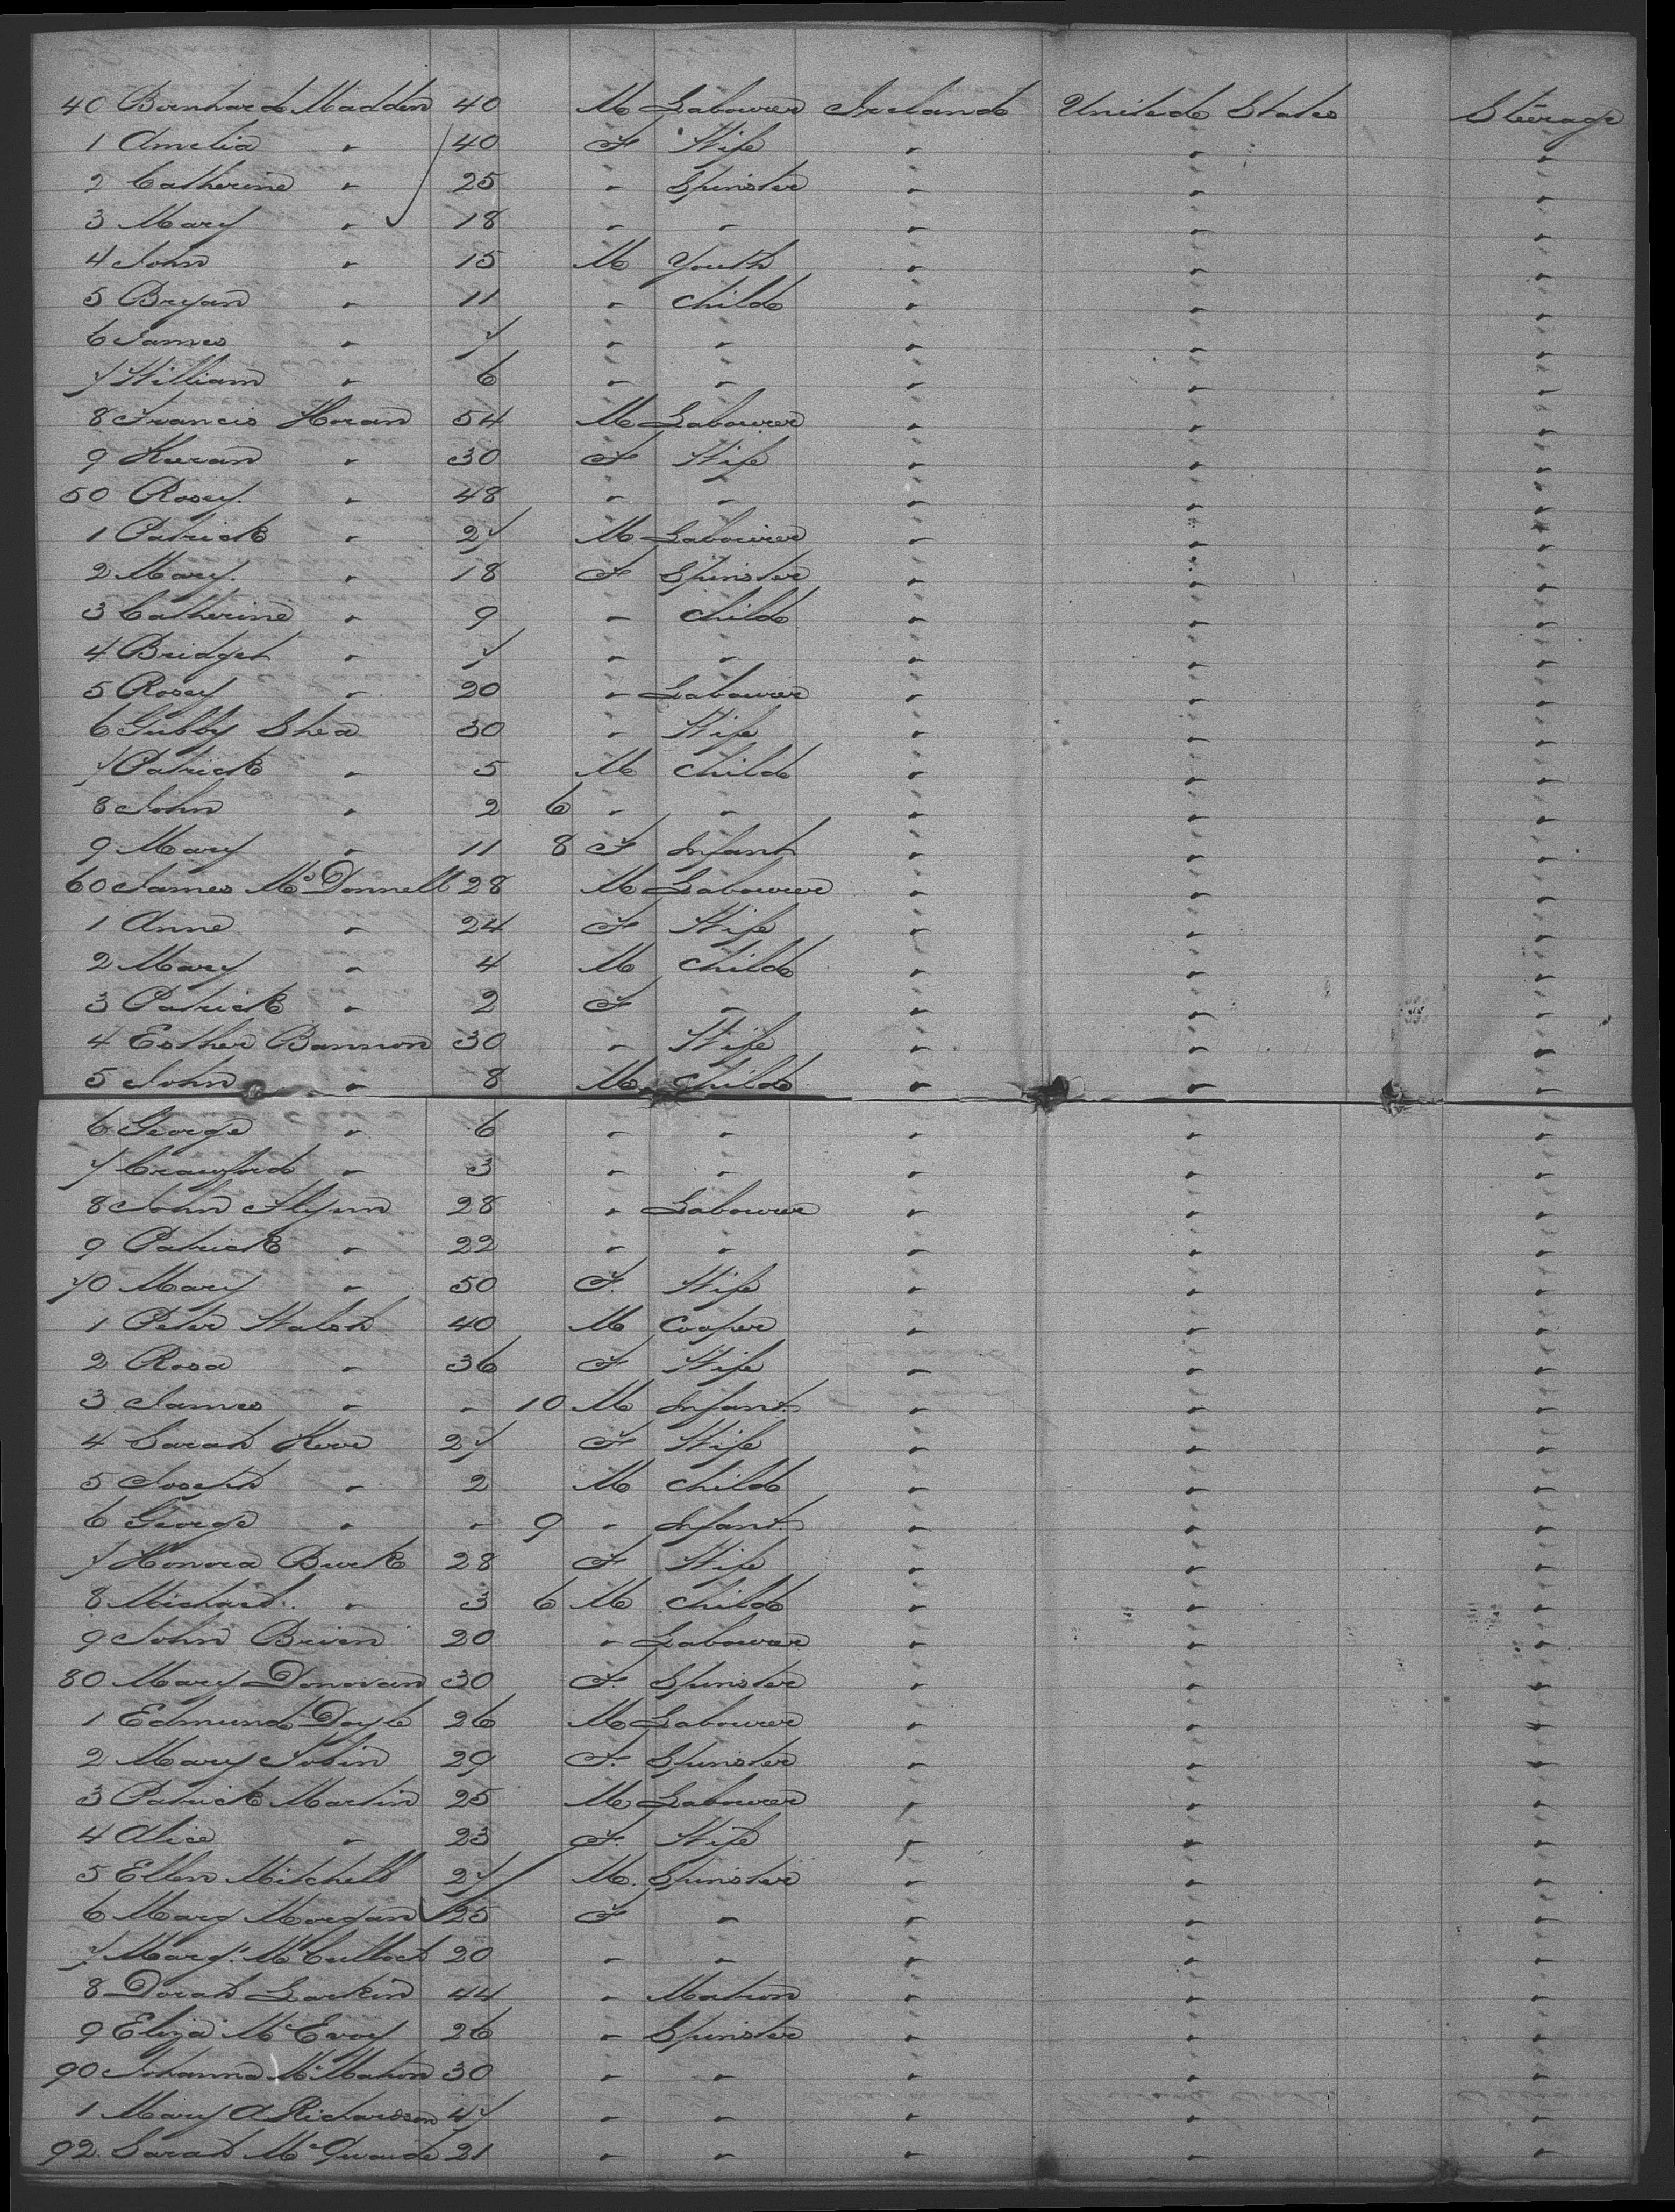 40 Bernhard Madden 40 M Labourer Ireland United States Steerage
1 Amelia " 40 F Wife " " "
2 Catherine " 25 " Spinster " " "
3 Mary " 18 " " " " "
4 John " 15 M Youth " " "
5 Bryan " 11 " Child " " "
6 James " 7 " " " " "
7 William " 6 " " " " "
8 Francis Horan 54 M Labourer " " "
9 Kieran " 30 F Wife " " "
50 Rosey " 48 " " " " "
1 Patrick " 27 M Labourer " " "
2 Mary " 18 F Spinster " " "
3 Catherine " 9 " Child " " "
4 Bridget " 7 " " " " "
5 Rosey " 20 " Labourer " " "
6 Gubby Shea 30 " Wife " " "
7 Patrick " 5 M Child " " "
8 John " 2 6 " " " " "
9 Mary " 11 8 F Infant " " "
60 James McDonnell 28 M Labourer " " "
1 Anne " 24 F Wife " " "
2 Mary " 4 M Child " " "
3 Patrick " 2 F " " " "
4 Esther Bannon 30 " Wife " " "
5 John " 8 M Child " " "
6 George " 6 " " " " "
7 Crawford " 3 " " " " "
8 John Flynn 28 " Labourer " " "
9 Patrick " 22 " " " " "
70 Mary " 50 F. Wife " " "
1 Peter Walsh 40 M Cooper " " "
2 Rosa " 36 F Wife " " "
3 James " " 10 M Infant " " "
4 Sarah Kerr 27 F Wife " " "
5 Joseph " 2 M Child " " "
6 George " " 9 " Infant " " "
7 Honora Burk 28 F Wife " " "
8 Michael " 3 6 M Child " " "
9 John Brien 20 " Labourer " " "
80 Mary Donovan 30 F. Spinster " " "
1 Edmund Doyle 26 M Labourer " " "
2 Mary Tobin 29 F. Spinster " " "
3 Patrick Martin 25 M Labourer " " "
4 Alice " 23 F. Wife " " "
5 Ellen Mitchell 27 M. Spinster " " "
6 Marg Morgan 25 F " " " "
7 Margt. McCulloch 20 " " " " "
8 Dorah Larkin 44 " Matron " " "
9 Eliza McEvoy 26 " Spinster " " "
90 Johanna McMahon 30 " " " " "
1 Mary A Richardson 47 " " " " "
92 Sarah 21 " " " " "